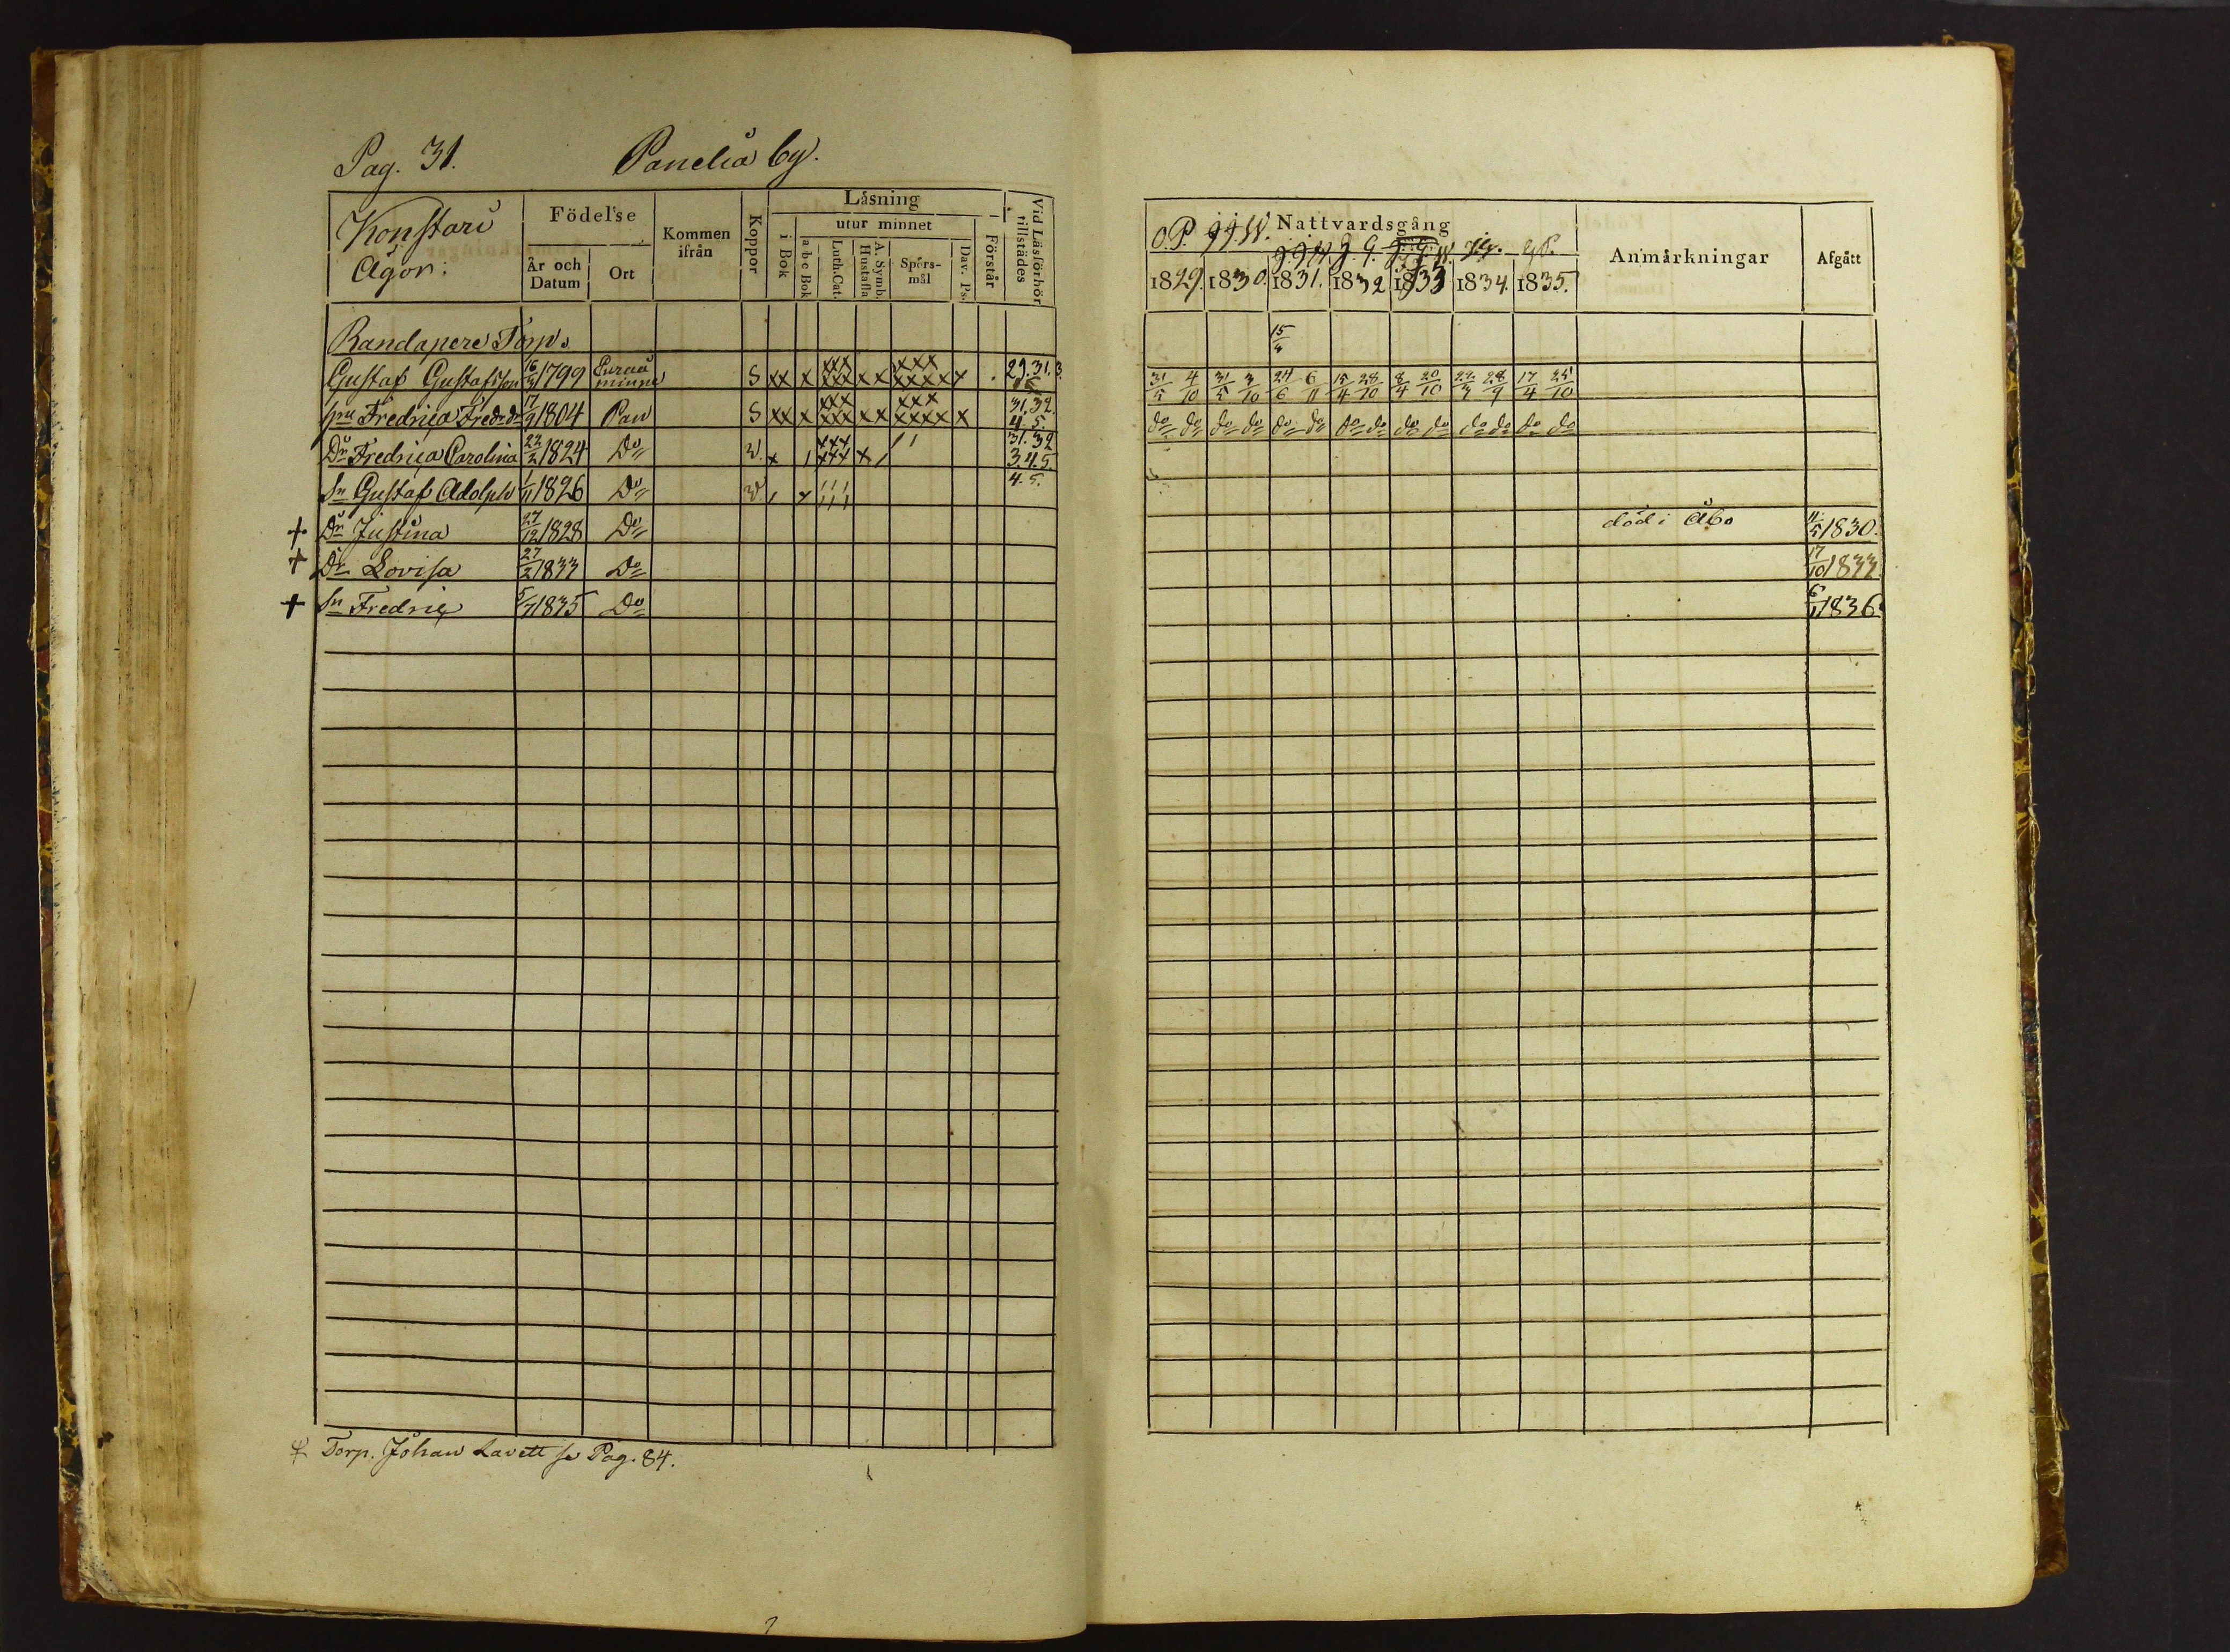 Pag. 31. Panelia by.
Konstari
Ägor.
Födelse
År och Datum
Ort
Kommen ifrån
Koppor
Läsning
i Bok
utur minnet
a b c Bok
Luth. Cat.
A. Symb. Hustafla
Spörsmål
Dav. Ps.
Förstår
Vid Läsförhör tillstädes
Randapere Torp.
Gustaf Gustafsson 16/3 1799 S xx x xxx xxx x x xxx xxxx x 29. 31. 3.
Fredrica Fredr. dr 17/9 1804 Pan S xx x xxx xxx x x xxx xxxx x 31. 32. 4. 5.
Dr Fredrica Carolina 22/2 1824 Do W. x xxx xxx x 31. 32 3. 4. 5.
Sn Gustaf Adolph 1/11 1826 Do W. 4. 5.
+ Dr Justina 27/12 1828 Do
+ Dr Lovisa 27/2 1833 Do
+ Sn Fredric 5/7 1835 Do
Torp. Johan Lavett se Pag. 84.
O. P. Nattvardsgång
1829. 1830. 1831. 1832 1833 1834. 1835.
Anmärkningar
Afgått
15
31/5 4/10 31/5 3/10 24/6 6/11 15/4 28/10 8/4 20/10 22/3 28/9 17/4 25/10
do do do do do do do do do do do do do do
död i Åbo 11/5 1830.
17/10 1833.
6/1 1836